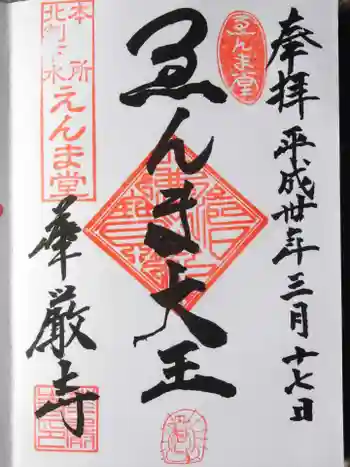 奉拝 平成卅年三月十七日
ゑんま堂
ゑんま大王
本所
えんま堂
華厳寺